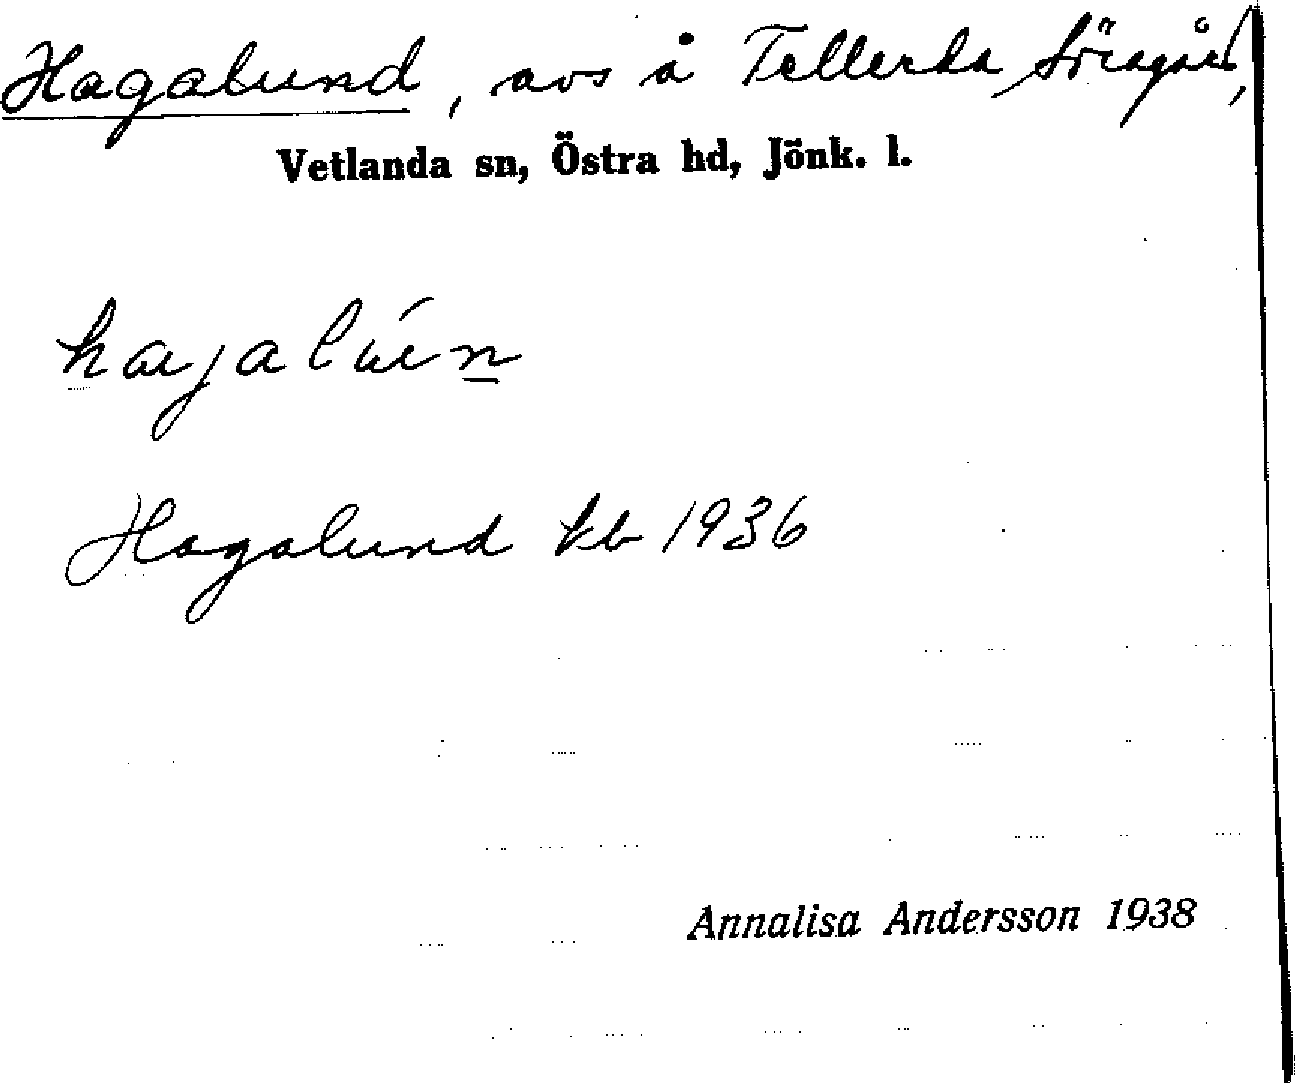 Hagalund, avs å Tellerda Söragård,
Vetlanda sn, Östra hd, Jönk. l.
Hagalund kb 1936
Annalisa Andersson 1938